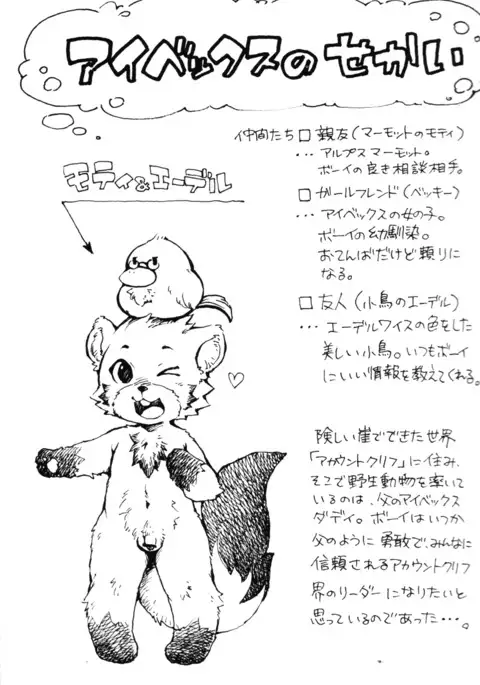 アイベックスのせかい
モティ&エーデル
仲間たち□親友(マーモットのモティ)
…アルプスマーモット。
ボーイの良き相談相手。
□ガールフレンド(ベッキー)
…アイベックスの女の子。
ボーイの幼馴染。
おてんばだけど頼りに
なる。
□友人(小鳥のエーデル)
…エーデルワイスの色をした
美しい小鳥。いつもボーイ
にいい情報を教えてくれる。
険しい崖でできた世界
「アカウントクリフ」に住み、
そこで野生動物を率いて
いるのは、父のアイベックス
ダディ。ボーイはいつか
父のように勇敢で、みんなに
信頼されるアカウントクリフ
界のリーダーになりたいと
思っているのであった…。